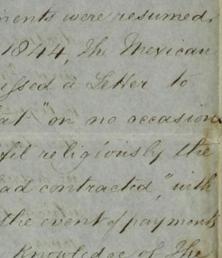 ments were resumed,
1844, the Mexican
essed a Letter to
at "on no occasion
fil religiously the
ad contracted," with
the event of payments
Knowledge of The